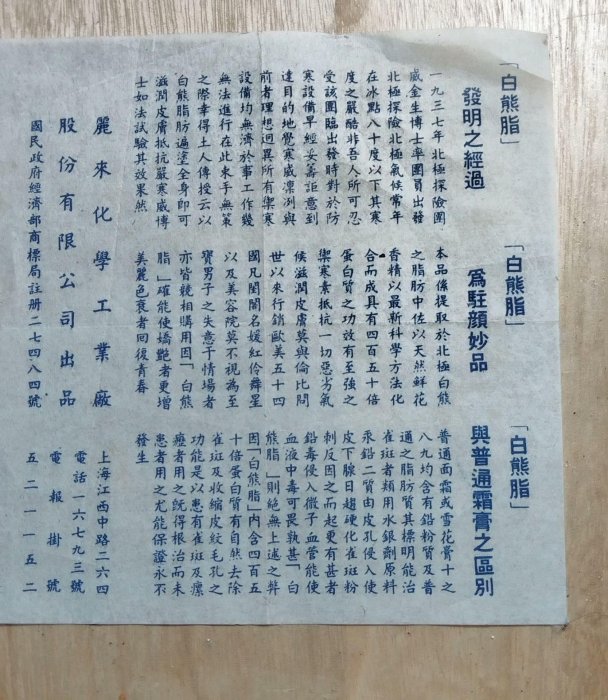 「白熊脂」
發明之經過
一九三七年北極探險團
威金生博士率團員出發
北極探險北極氣候常年
在冰點八十度以下其寒
度之嚴酷非吾人所可忍
受該團臨出發時對於防
寒設備早經妥籌詎意到
達目的地覺寒威凛冽與
前者理想迥異所有禦寒
設備均無濟於事工作幾
無法進行在此束手無策
之際幸得土人傳授云以
白熊脂肪遍塗全身即可
滋潤皮膚抵抗嚴寒威博
士如法試驗其效果然
「白熊脂」
為駐顏妙品
本品係提取於北極白熊
之脂肪中佐以天然鮮花
香精以最新科學方法化
合而成具有四百五十倍
蛋白質之功效有至強之
禦寒素抵抗一切惡劣氣
候滋潤皮膚莫與倫比問
世以來行銷歐美五十四
國凡閨閣名媛紅伶舞星
以及美容院莫不視為至
寶男子之失意于情場者
亦皆競相購用因「白熊
脂」確能使嬌艷者更增
美麗色衰者回復青春
「白熊脂」
與普通霜膏之區別
普通面霜或雪花膏十之
八九均含有鉛粉質及普
通之脂肪質其標明能治
雀斑者類用水銀劑原料
汞鉛二質由皮孔侵入使
皮下腺日趨硬化雀斑粉
刺反因之而起更有甚者
鉛毒侵入微子血管能使
血液中毒可畏孰甚「白
熊脂」則絕無上述之弊
因「白熊脂」內含四百五
十倍蛋白質有自然去除
雀斑及收縮皮紋毛孔之
功能是以患有雀斑及瘰
癧者用之旣得根治而未
患者用之尤能保證永不
發生
麗來化學工業廠
股份有限公司出品
國民政府經濟部商標局註册二七四八四號
上海江西中路二六四
電話一六七九三號
電報掛號
五二一一五二